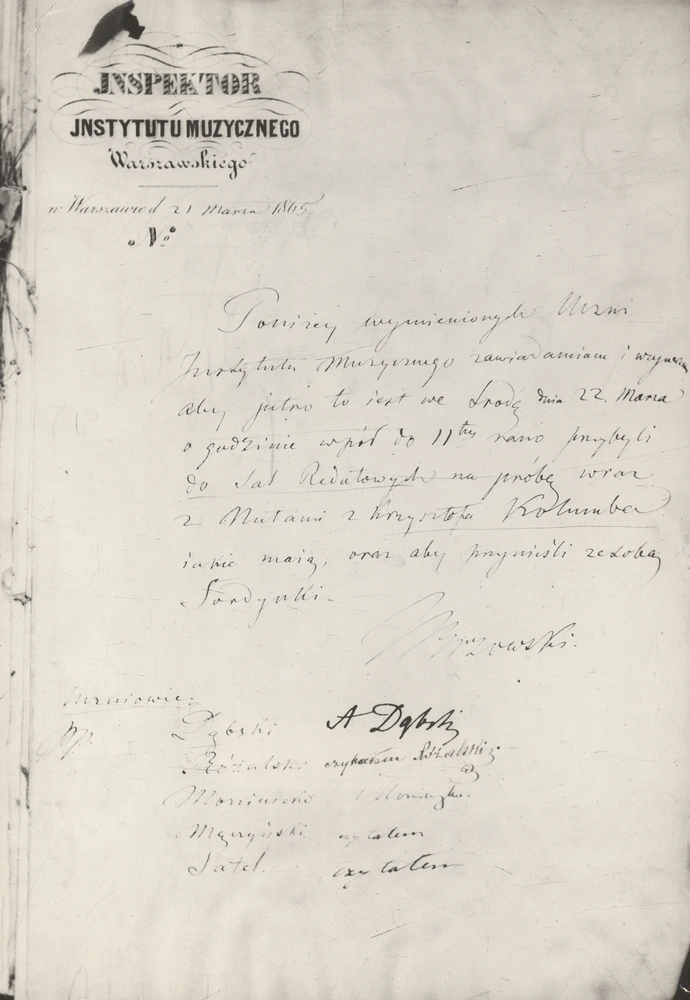 JNSPEKTOR
JNSTYTUTU MUZYCZNEGO
Warszawskiego
w Warszawie d 21 Marca 1865
№
Poniżej wymienionych Uczni
Instytutu Muzycznego zawiadamiam i wzywam
aby jutro to iest we Srodę dnia 22. Marca
o godzinie wpół do 11tej rano przybyli
do Sal Redutowych na próbę wraz
z Nutami z Krzysztofa Kolumba
iakie maią, oraz aby przynieśli ze sobą
Sordynki.
Uczniowie:
pp.
Dąbski A Dąbski
Rózalski czytałem Rózalski
Moniuszko
Męczyński czytałem
Satel. czytałem